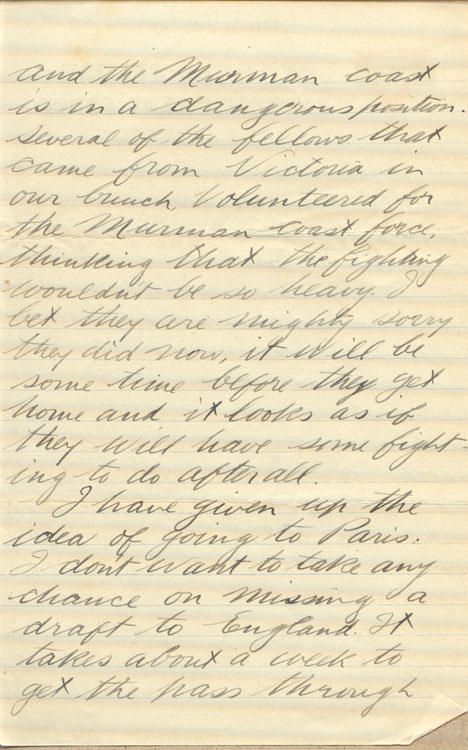 and the Murman coast
is in a dangerous position.
Several of the fellows that
came from Victoria in
our bunch, Volunteered for
the Murman coast force,
thinking that the fighting
wouldn't be so heavy. I
bet they are mighty sorry
they did now, it will be
some time before they get
home and it looks as if
they will have some fight-
ing to do after all.
I have given up the
idea of going to Paris.
I don't want to take any
chance on missing a
draft to England. It
takes about a week to
get the pass through